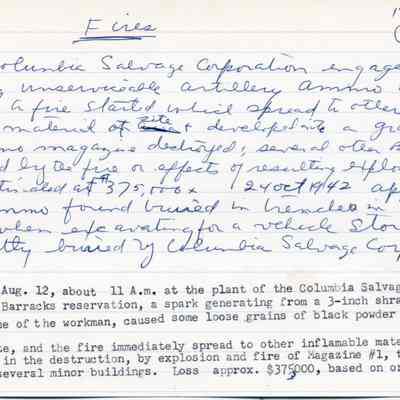 Fires
Columbia Salvage Corporation engage
unserviceable artillery ammo
a fire started which spread to other
material at site & developed into a gr
mo magazine destroyed; several other
d by the fire or effects of resulting explo
at $375,000 24 Oct 1942
mmo found buried in trenches in
when excavating for a vehicle Stor
buried by Columbia Salvage Corp
Aug. 12, about 11 A.m. at the plant of the Columbia Salvag
Barracks reservation, a spark generating from a 3-inch shra
e of the workman, caused some loose grains of black powder
te, and the fire immediately spread to other inflamable mate
in the destruction, by explosion and fire of Magazine #1, t
several minor buildings. Loss approx. $375000, based on or